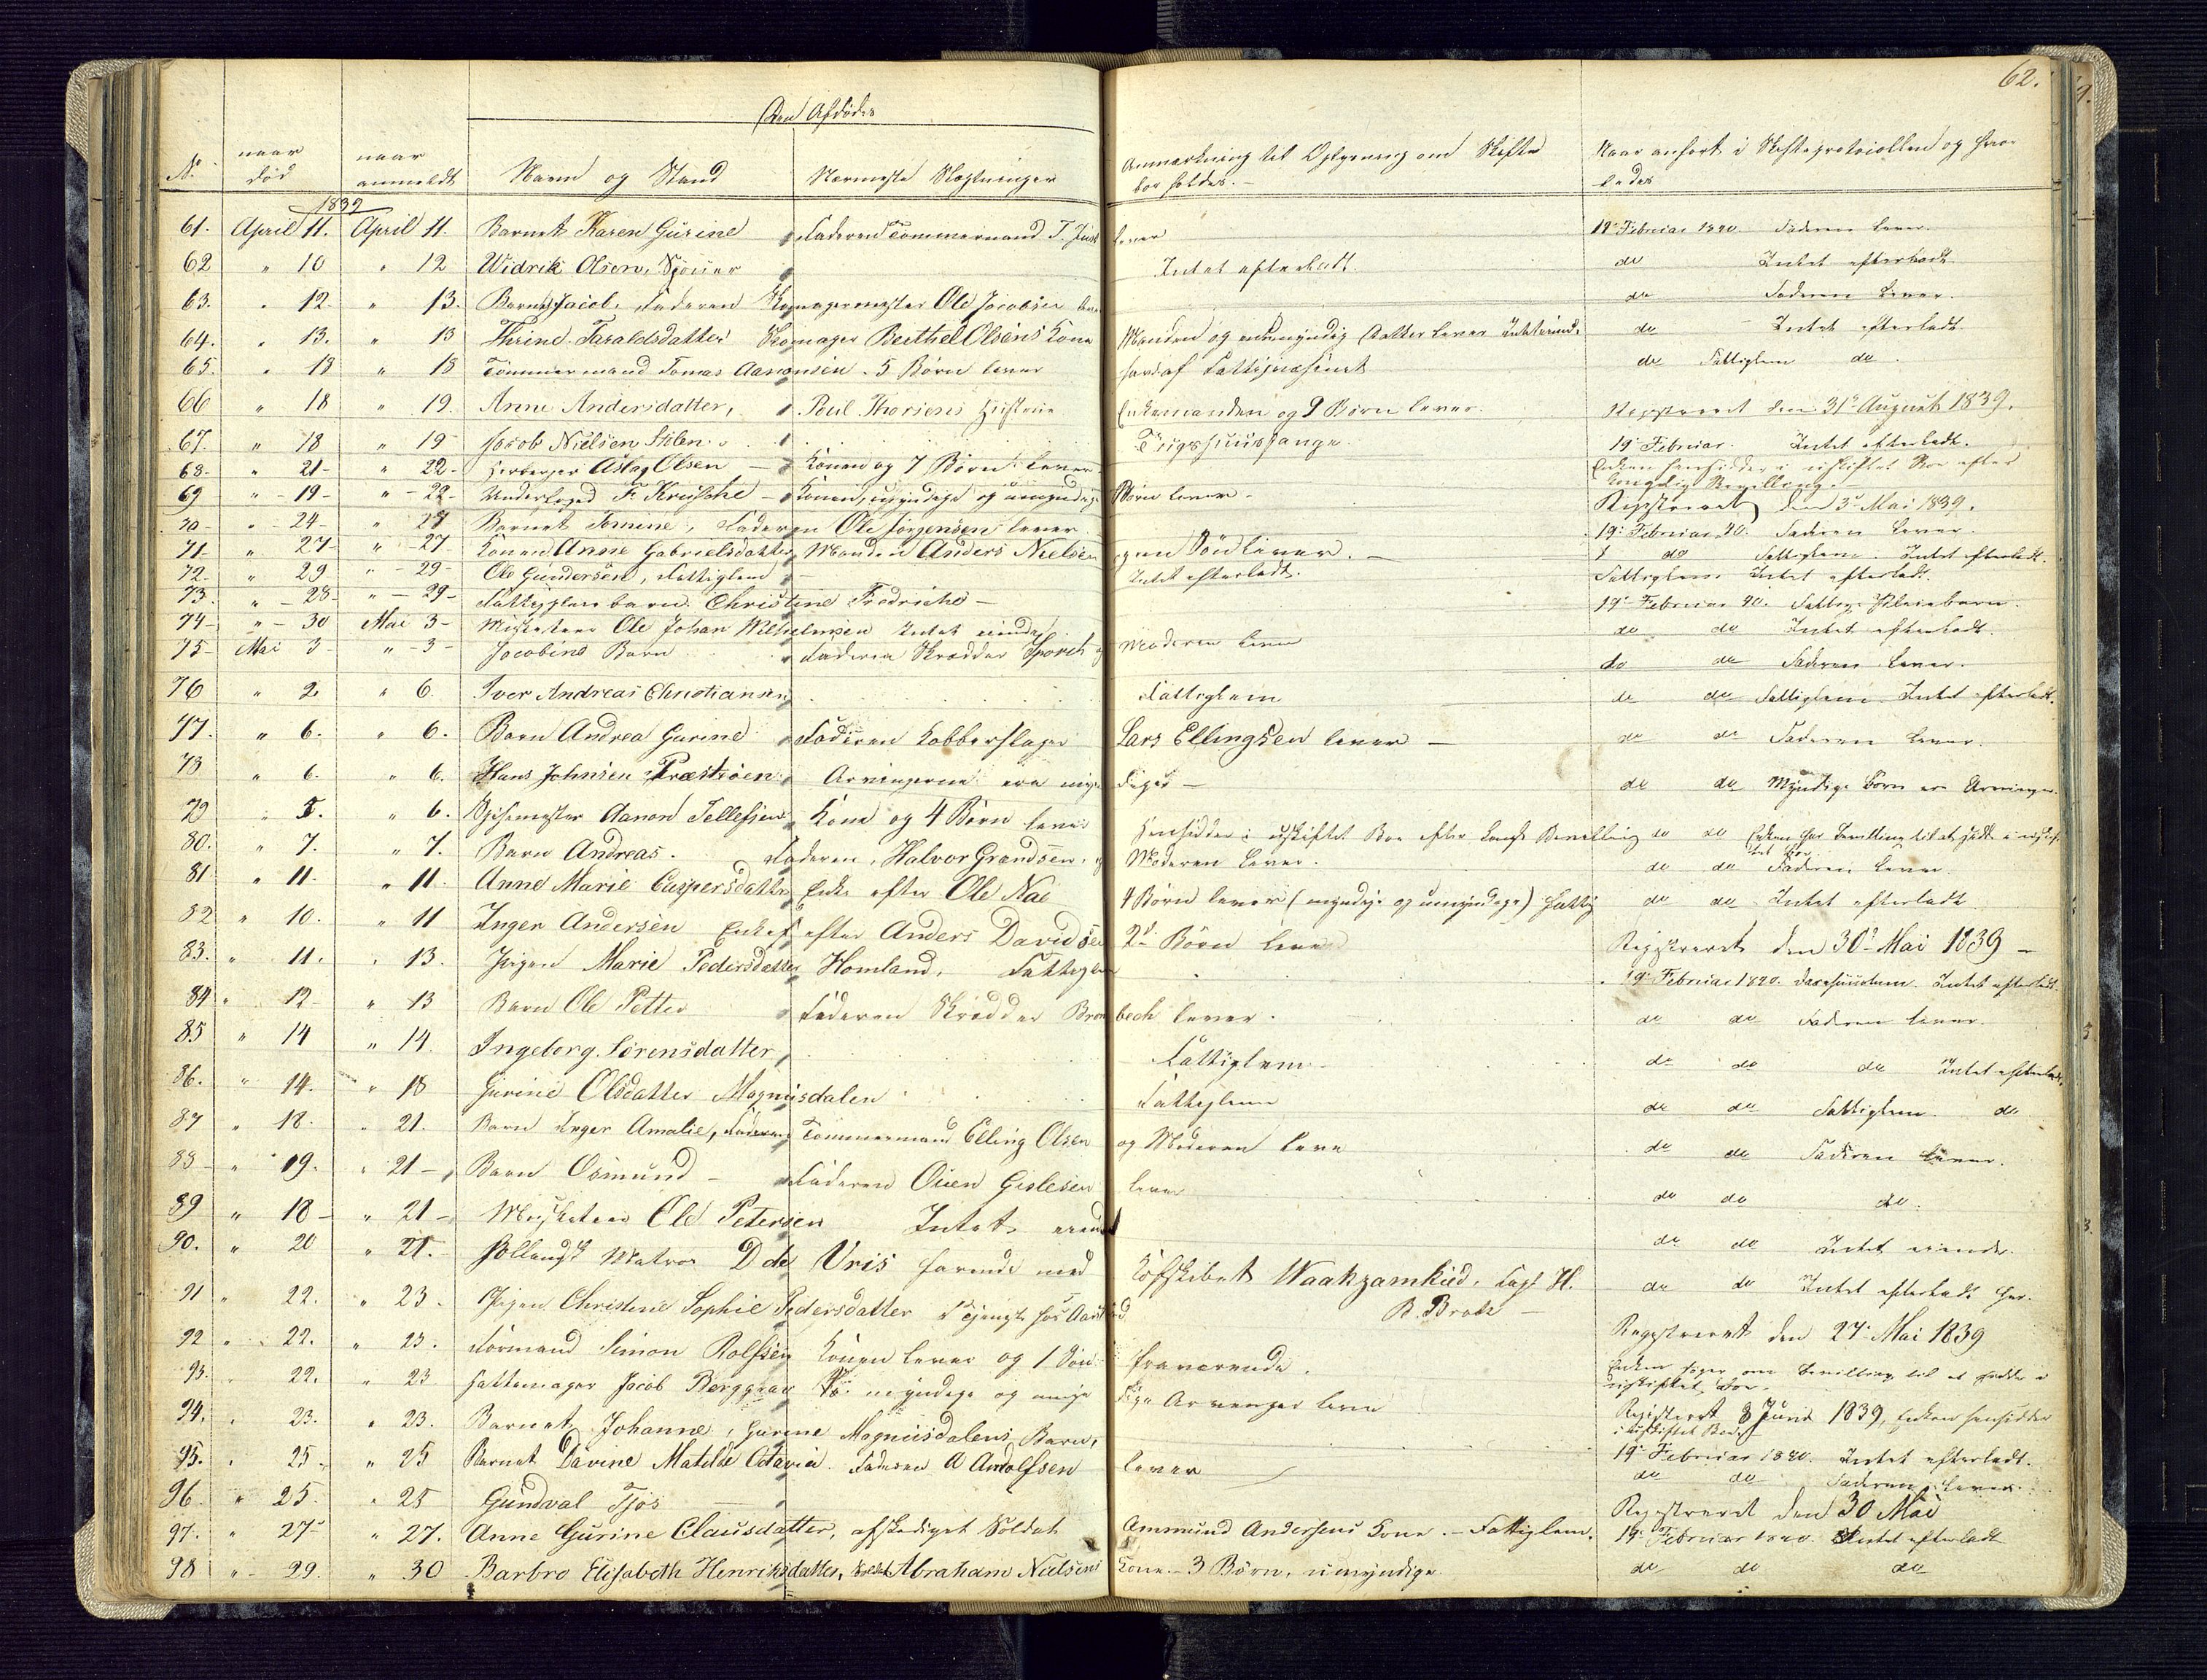 62.
Den Afdødes
No. naar død naar anmeldt Navn og Stand Nærmeste Slægtninger Anmærkning til Oplysning om Skifte bør holdes. Naar anført i Skifteprotocollen og hvorledes
1839
61. April 11. April 11. Barnet Karen Gurine Faderen Tømmermand T. lever 19de Februar 1840 Faderen lever.
62 " 10 " 12 Widrik Olsen, Intet efterladt do Intet efterladt
63. " 12 " 13. Barnet Jacob. Faderen Skomagermester Ole Jacobsen lever do Faderen lever.
64. " 13. " 13 Thrine Taraldsdatter Skomager Berthel Olsens Kone Manden og en umyndig Datter lever do Intet efterladt
65. " 18 " 18 Tømmermand Tomas Aanonsen. 5 Børn lever af Fattigvæsenet do Fattiglem do
66 " 18 " 19. Anne Andersdatter, Poul Thorsens Hustrue Enkemanden og 9 Børn lever. Registreret den 31te August 1839.
67. " 18 " 19 Jacob Nielsen Stilen Tugthuusfange 19de Februar. Intet efterladt.
68. " 21 " 22 Aslag Olsen Konen og 7 Børn lever Enken hensidder i uskiftet Boe efter kongelig Bevilling.
69 " 19 " 22 Underfoged F. Konen, myndige og umyndige Børn lever. Registreret den 3de Mai 1839.
70 " 24 " 27 Barnet Tomine, Faderen Ole Jørgensen lever 19de Februar 40. Faderen lever.
71 " 27 " 27 Konen Anne Gabrielsdatter, Manden Anders Nielsen og en Søn lever. do Fattiglem. Intet efterladt.
72. " 29 " 29 Ole Gundersen, Fattiglem Intet efterladt. Fattiglem. Intet efterladt.
73. " 28 " 29 Fattiglems barn Christine Fredrikke 19de Februar 40. Fattig Pleiebarn.
74 " 30 Mai 3 Musketeer Ole Johan Wilhelmsen Intet eiende do do Intet efterladt.
75 Mai 3 " 3 Jacobine Barn Faderen Skrædder og Moderen lever do do Faderen lever.
76 " 2 " 6. Iver Andreas Christiansen Fattiglem do do Fattiglem. Intet efterladt.
77. " 6. " 6. Barn Andrea Gurine Faderen Kobberslager Lars Ellingsen lever do do Faderen lever.
78 " 6. " 6. Hans Johnsen Præstøen Arvingerne ere myndiges do do Myndige Børn ere Arvinger.
79 " 5. " 6. Aanon Tellefsen Kone og 4 Børn lever hensidder i uskiftet Boe efter kongl. Bevilling do do Enken har Bevilling til at sidde i uskiftet Boe
80. " 7. " 7. Barn Andreas. Faderen, Halvor Grandsen, og Moderen lever. do do Faderen lever.
81 " 11. " 11. Anne Marie Caspersdatter Enke efter Ole Næs 4 Børn lever (myndige og umyndige) fattig do do Intet efterladt
82 " 10. " 11 Inger Andersen Enke efter Anders Davidsen 2de Børn lever Registreret den 30te Mai 1839
83. " 11. " 13. Pigen Marie Pedersdatter Homland, Fattiglem 19de Februar 1840. Intet efterladt.
84 " 12 " 13 Barn Ole Petter Faderen Skrædder Brombech lever. do do Faderen lever.
85 " 14 " 14. Ingeborg Sørensdatter Fattiglem do do do Intet efterladt
86. " 14. " 18 Gurine Olsdatter Magnusdalen Fattiglem do do Fattiglem do
87 " 18. " 21. Barn Inger Amalie, Faderen, Tømmermand Elling Olsen og Moderen leve do do Faderen lever.
88 " 19. " 21 Barn Osmund Faderen Ouen Gislesen lever do do do.
89 " 18 " 21 Musketeer Ole Petersen Intet eiende do do Intet eiende.
90. " 20 " 21. Hollandsk Matros D de Vris farende med Kofskibet Waakzamhied, Capt. H. B. Brok do do Intet efterladt her.
91 " 22. " 23. Pigen Christene Sophie Pedersdatter Registreret den 27. Mai 1839
92 " 22. " 23. Formand Simon Rolfsen Konen lever og 1 Søn fraværende. Enken søger om Bevilling til at sidde i uskiftet Boe.
93. " 22. " 23 Hattemager Jacob Berggrav myndige og umyndige Arvinger leve Registreret 8 Juni 1839, Enken hensidder i uskiftet Boe
94. " 23. " 23. Barnet Johanne, Gurine Magnusdalens Barn, 19de Februar 1840. Intet efterladt.
95. " 25 " 25 Barnet Davine Matilde Octavia. Faderen A Andolfsen lever do do Faderen lever.
96. " 25. " 25 Gundval Tjos Registreret den 30 Mai
97. " 27 " 27. Anne Gurine Clausdatter, afskediget Soldat Ammund Andersens Kone. Fattiglem. 19de Februar 1840. Intet efterladt
98 " 29. " 30 Barbro Elisabeth Henriksdatter, Abraham Nielsens Kone. 3 Børn, umyndige do do do